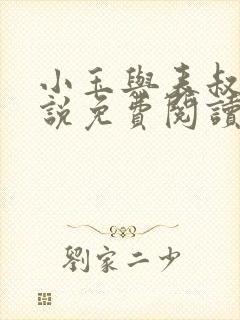 小玉與表叔
說免費閱讀
劉家二少